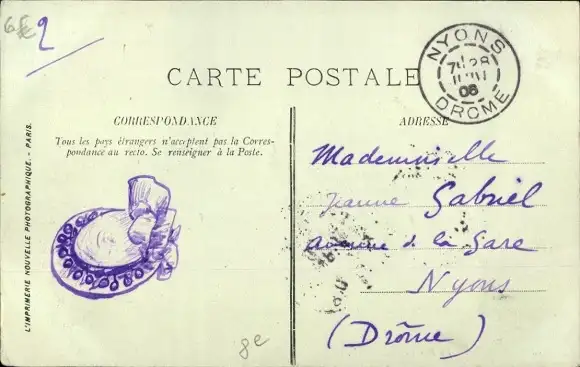 2
NYONS
DROME
7H 28
JUIN
06
CARTE POSTALE
CORRESPONDANCE
Tous les pays étrangers n'acceptent pas la Corres-
pondance au recto. Se renseigner à la Poste.
ADRESSE
Mademoiselle
Jeanne Gabriel
Avenue de la Gare
Nyons
(Drôme)
L'IMPRIMERIE NOUVELLE PHOTOGRAPHIQUE. - PARIS.
8e